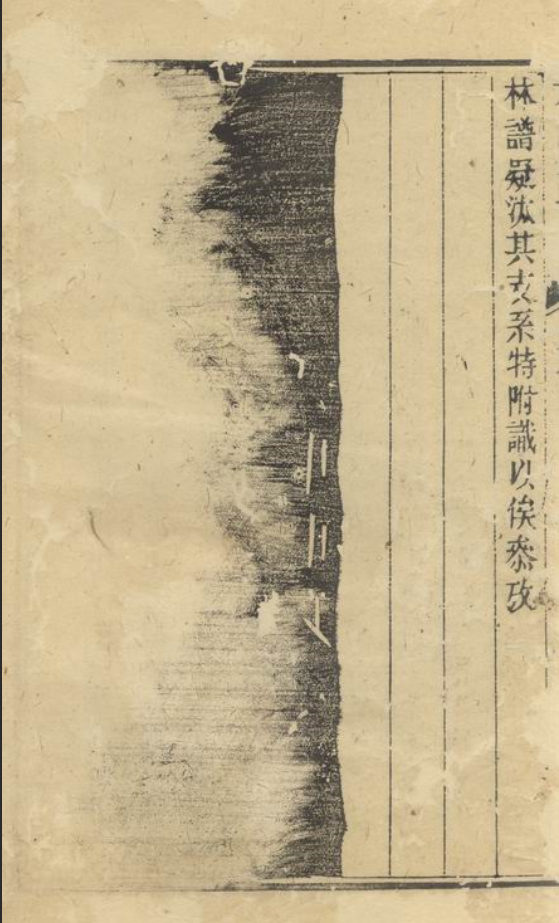 林譜疑沠其支系特附識以俟叅攷